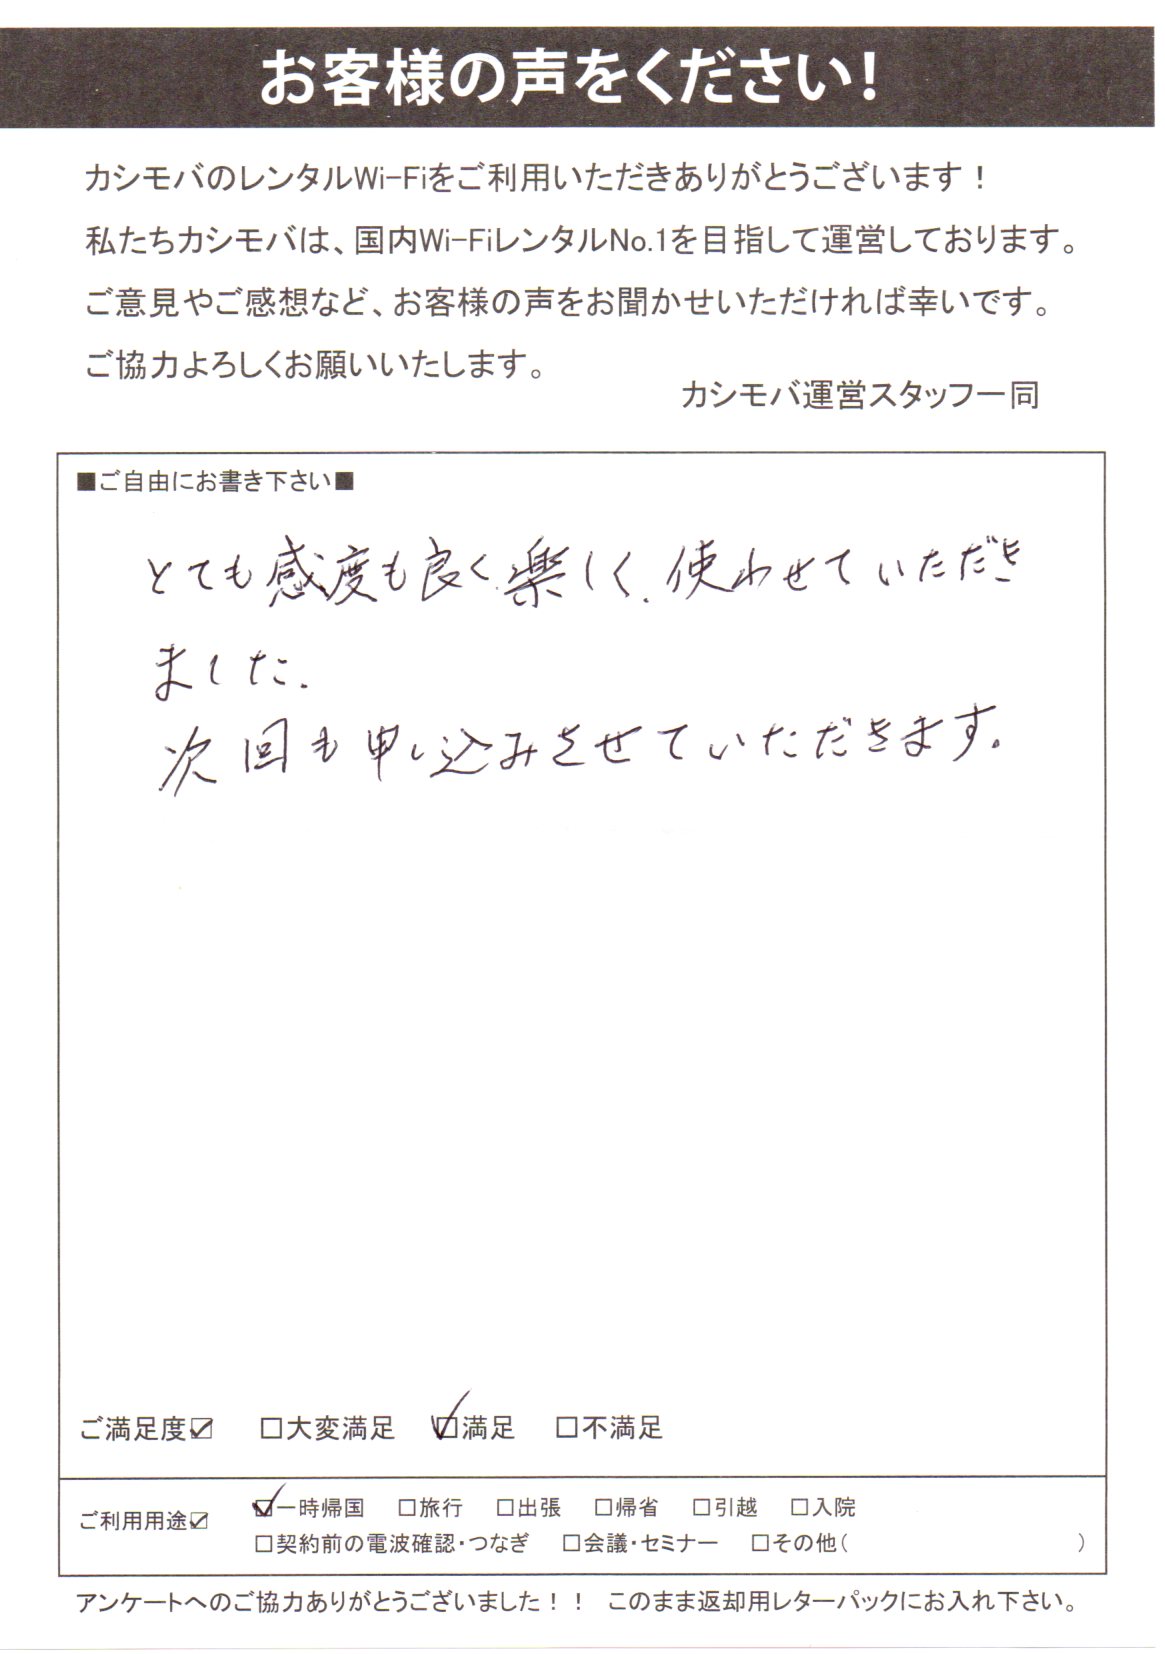 お客様の声をください!
カシモバのレンタルWi-Fiをご利用いただきありがとうございます！
私たちカシモバは、国内Wi-FiレンタルNo.1を目指して運営しております。
ご意見やご感想など、お客様の声をお聞かせいただければ幸いです。
ご協力よろしくお願いいたします。
カシモバ運営スタッフ一同
■ご自由にお書き下さい■
とても感度も良く楽しく、使わせていただき
ました.
次回も申し込みさせていただきます。
ご満足度☑ □大変満足 ☑満足 □不満足
ご利用用途☑ ☑一時帰国 □旅行 □出張 □帰省 □引越 □入院
□契約前の電波確認・つなぎ □会議・セミナー □その他( )
アンケートへのご協力ありがとうございました！！ このまま返却用レターパックにお入れ下さい。